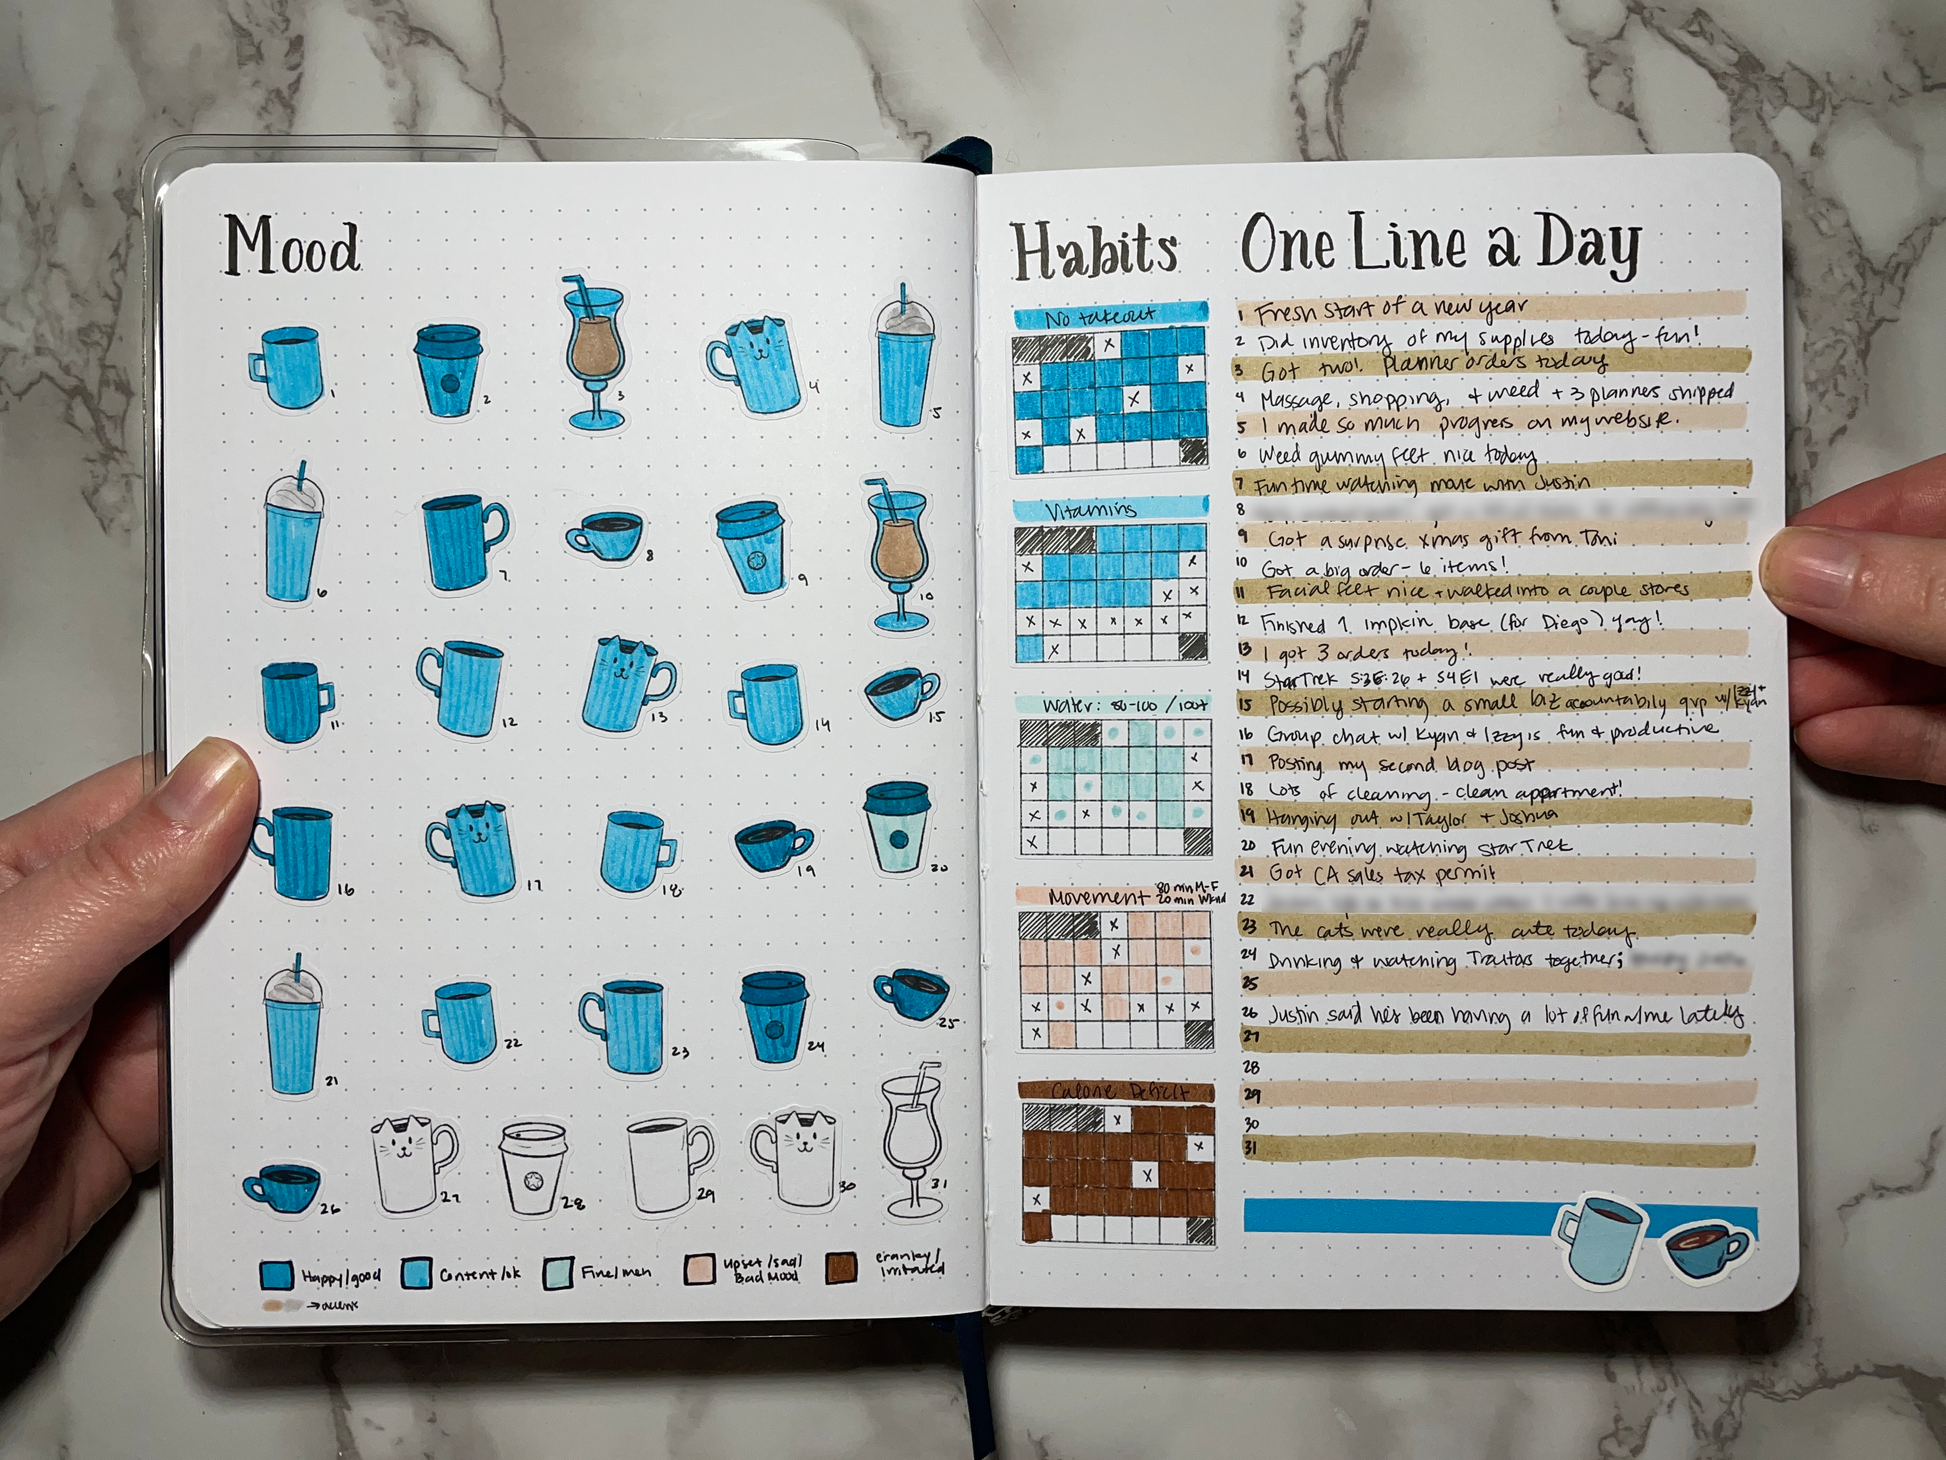 Mood
1
2
3
4
5
6
7
8
9
10
11
12
13
14
15
16
17
18
19
20
21
22
23
24
25
26
27
28
29
30
31
Happy/good
Content/ok
Fine/meh
Upset/sad/
Bad Mood
cranky/
Irritated
→ accent
Habits
No takeout
x
x
x
x
x
x
Vitamins
x
x
x
x
x
x
x
x
x
x
x
x
Water: 80-100 / 100+
x
x
x
x
x
x
Movement 30 min M-F
20 min Wknd
x
x
x
x
x
x
x
x
x
Calorie Deficit
x
x
x
x
One Line a Day
1 Fresh start of a new year
2 Did inventory of my supplies today - fun!
3 Got two! planner orders today
4 Massage, shopping, + weed + 3 planners shipped
5 I made so much progress on my website.
6 Weed gummy felt nice today
7 Fun time watching movie with Justin
8
9 Got a surprise xmas gift from Toni
10 Got a big order - 6 items!
11 Facial felt nice + walked into a couple stores
12 Finished 1 impkin base (for Diego) yay!
13 I got 3 orders today!
14 Star Trek S3E26 + S4E1 were really good!
15 Possibly starting a small biz accountabily grp w/ Izzy +
Kyan
16 Group chat w/ Kyan & Izzy is fun & productive
17 Posting my second blog post
18 Lots of cleaning - clean appartment!
19 Hanging out w/ Taylor + Joshua
20 Fun evening watching Star Trek
21 Got CA sales tax permit
22
23 The cats were really cute today
24 Drinking & watching Traitors together;
25
26 Justin said he's been having a lot of fun w/me lately
27
28
29
30
31